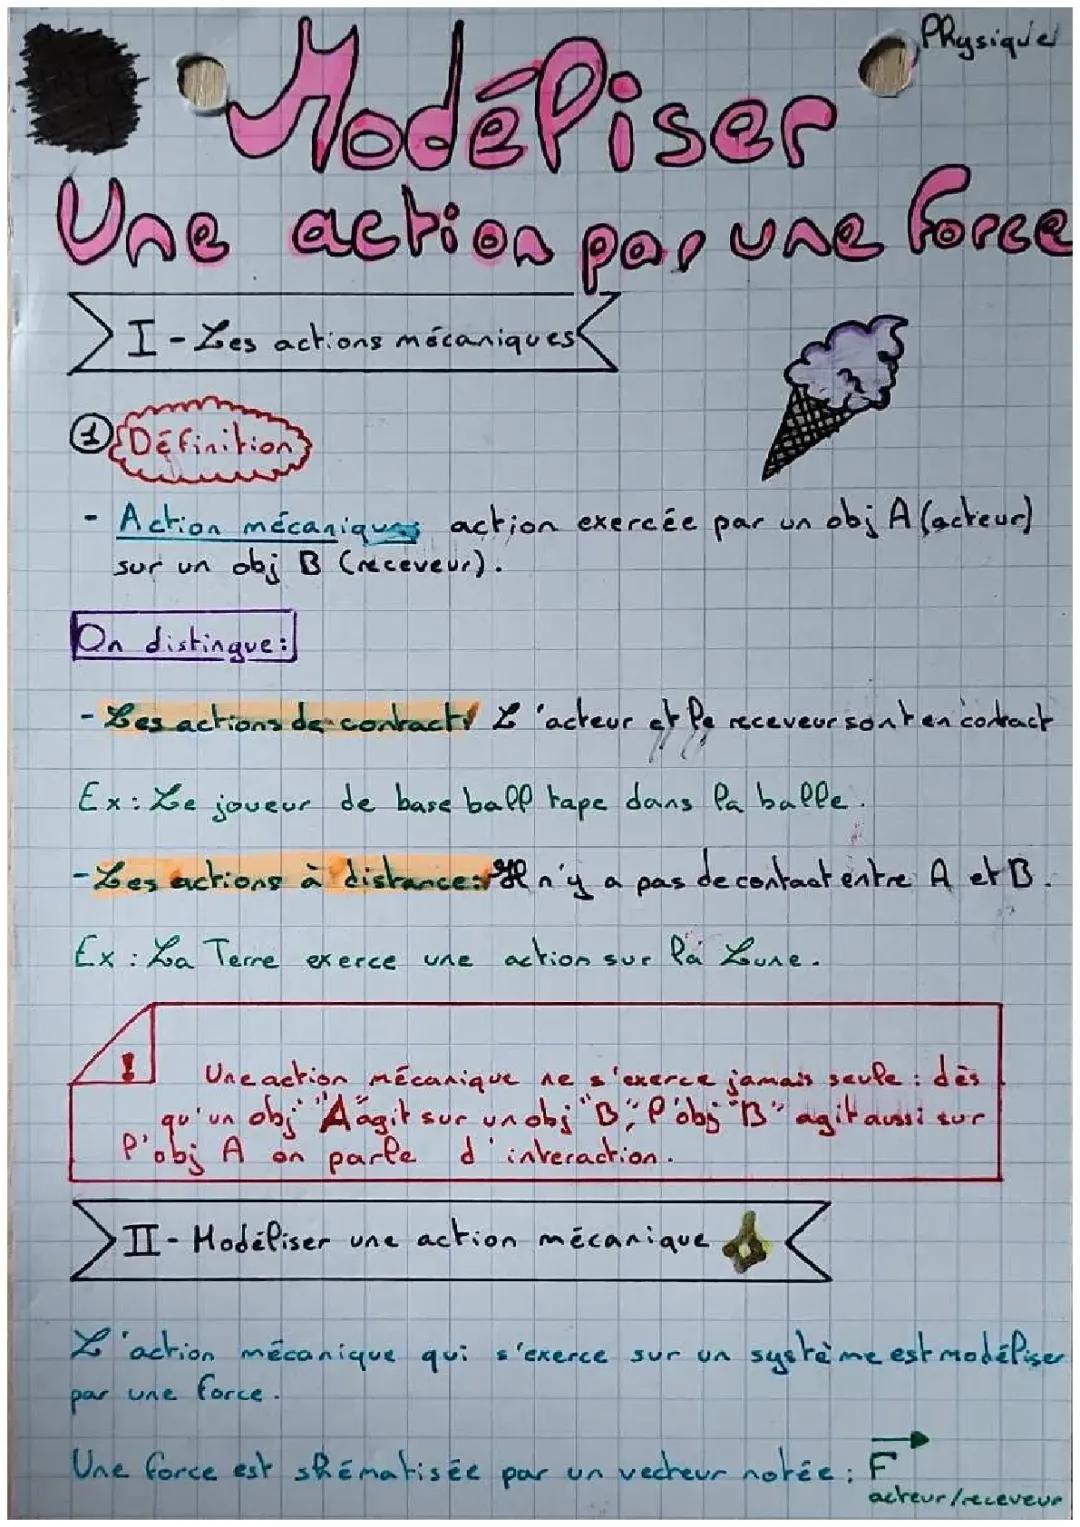 Physique
Modéliser
Une action par une force
I - Les actions mécaniques
1 Définition
- Action mécanique action exercée par un obj A (acteur)
sur un obj B (receveur).
On distingue:
- Les actions de contact L'acteur et le receveur sont en contact
Ex : Le joueur de base ball tape dans la balle.
- Les actions à distance: Il n'y a pas de contact entre A et B.
Ex : La Terre exerce une action sur la Lune.
! Une action mécanique ne s'exerce jamais seule : dès
qu'un obj "A" agit sur un obj "B", l'obj "B" agit aussi sur
l'obj A on parle d'interaction.
II - Modéliser une action mécanique
L'action mécanique qui s'exerce sur un système est modéliser
par une force.
Une force est shématisée par un vecteur notée : F
acteur/receveur